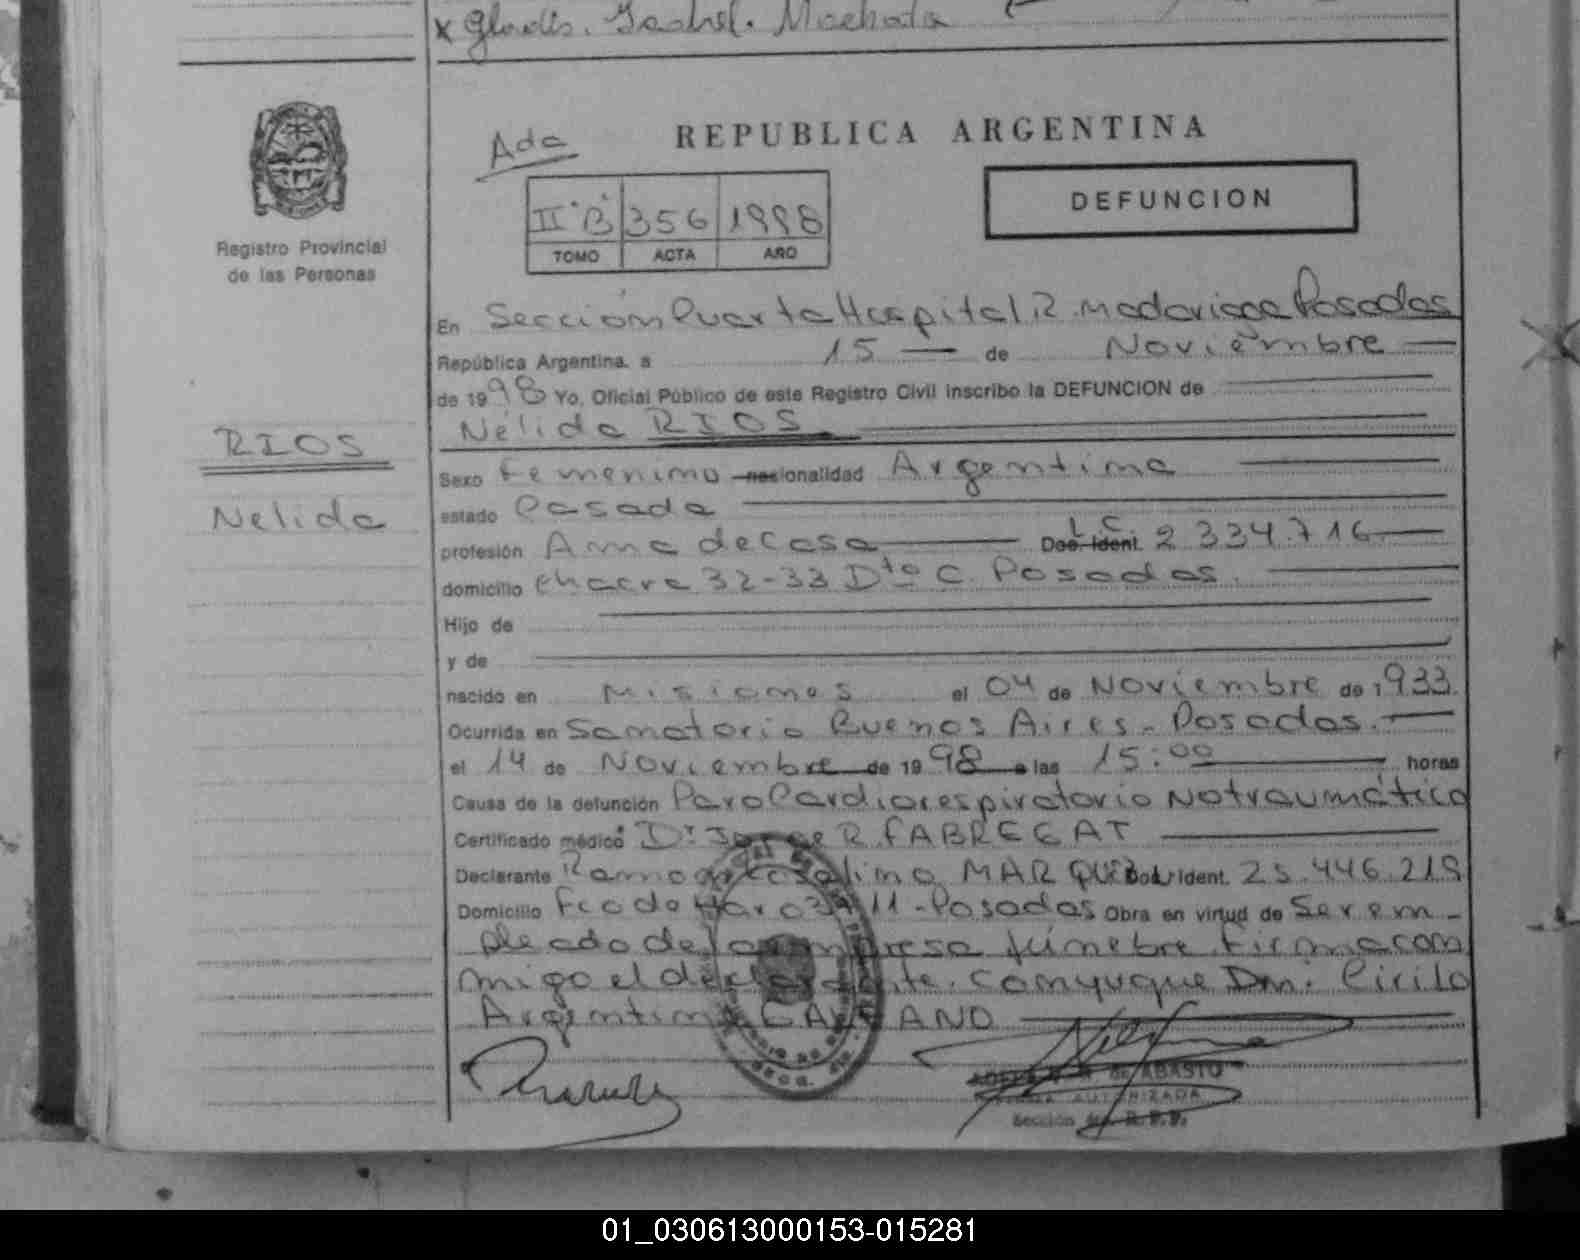 x Gladis. Isabel. Machado
REPUBLICA ARGENTINA
Ada
DEFUNCION
II "B" 356 1998
TOMO ACTA AÑO
Registro Provincial
de las Personas
En Sección Cuarta Hospital R. Madariaga Posadas
República Argentina, a 15 — de Noviembre —
de 1998 Yo, Oficial Público de este Registro Civil inscribo la DEFUNCION de
Nélida RIOS
RIOS
Nelida
Sexo Femenino nacionalidad Argentina
estado Casada
profesión Ama de Casa L.C. Doc. Ident. 2.334.716
domicilio Chacra 32-33 Dto C. Posadas.
Hijo de
y de
nacido en Misiones el 04 de Noviembre de 1933
Ocurrida en Sanatorio Buenos Aires - Posadas.
el 14 de Noviembre de 1998 a las 15:00 horas
Causa de la defunción Paro Cardiorespiratorio No traumático
Certificado médico Dr. Jorge R. FABREGAT
Declarante Ramon MARQUEZ Doc. Ident. 25.446.219
Domicilio Fco de Haro 3911 - Posadas Obra en virtud de Ser em-
pleado de la empresa fúnebre. Firma con
migo el declarante. Conyuque Dn. Cirilo
Argentino
de ABASTO
AUTORIZADA
Sección R.P.P.
01_030613000153-015281